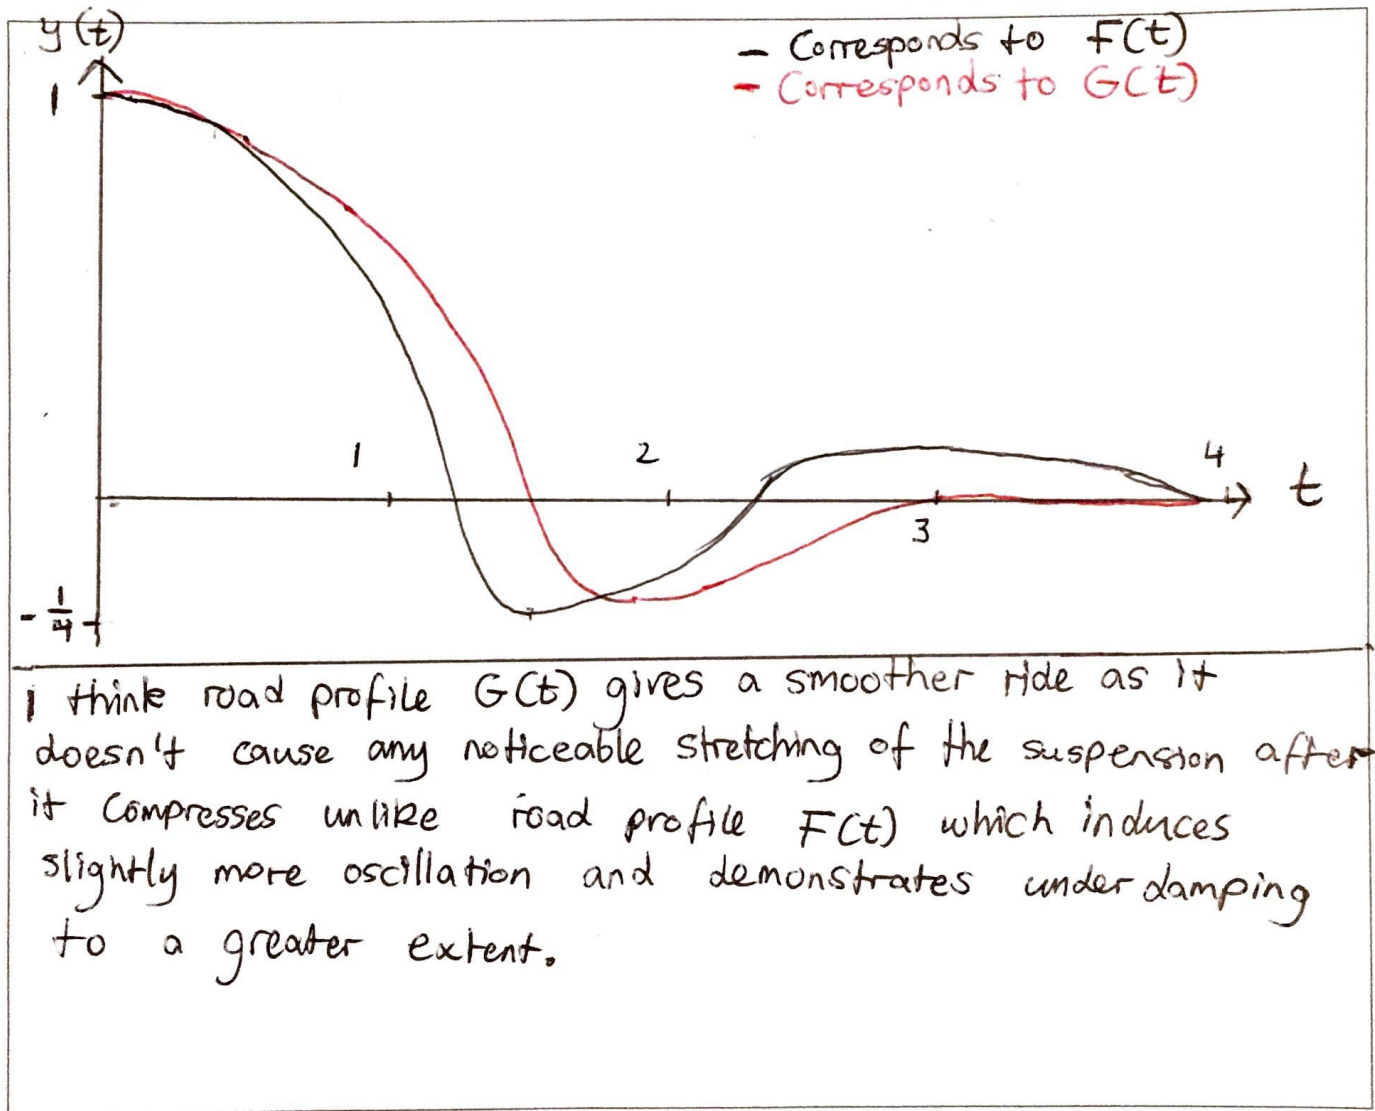 y(t)
— Corresponds to F(t)
— Corresponds to G(t)
1
1
2
4
t
3
- 1/4
I think road profile G(t) gives a smoother ride as it
doesn't cause any noticeable stretching of the suspension after
it compresses unlike road profile F(t) which induces
slightly more oscillation and demonstrates underdamping
to a greater extent.